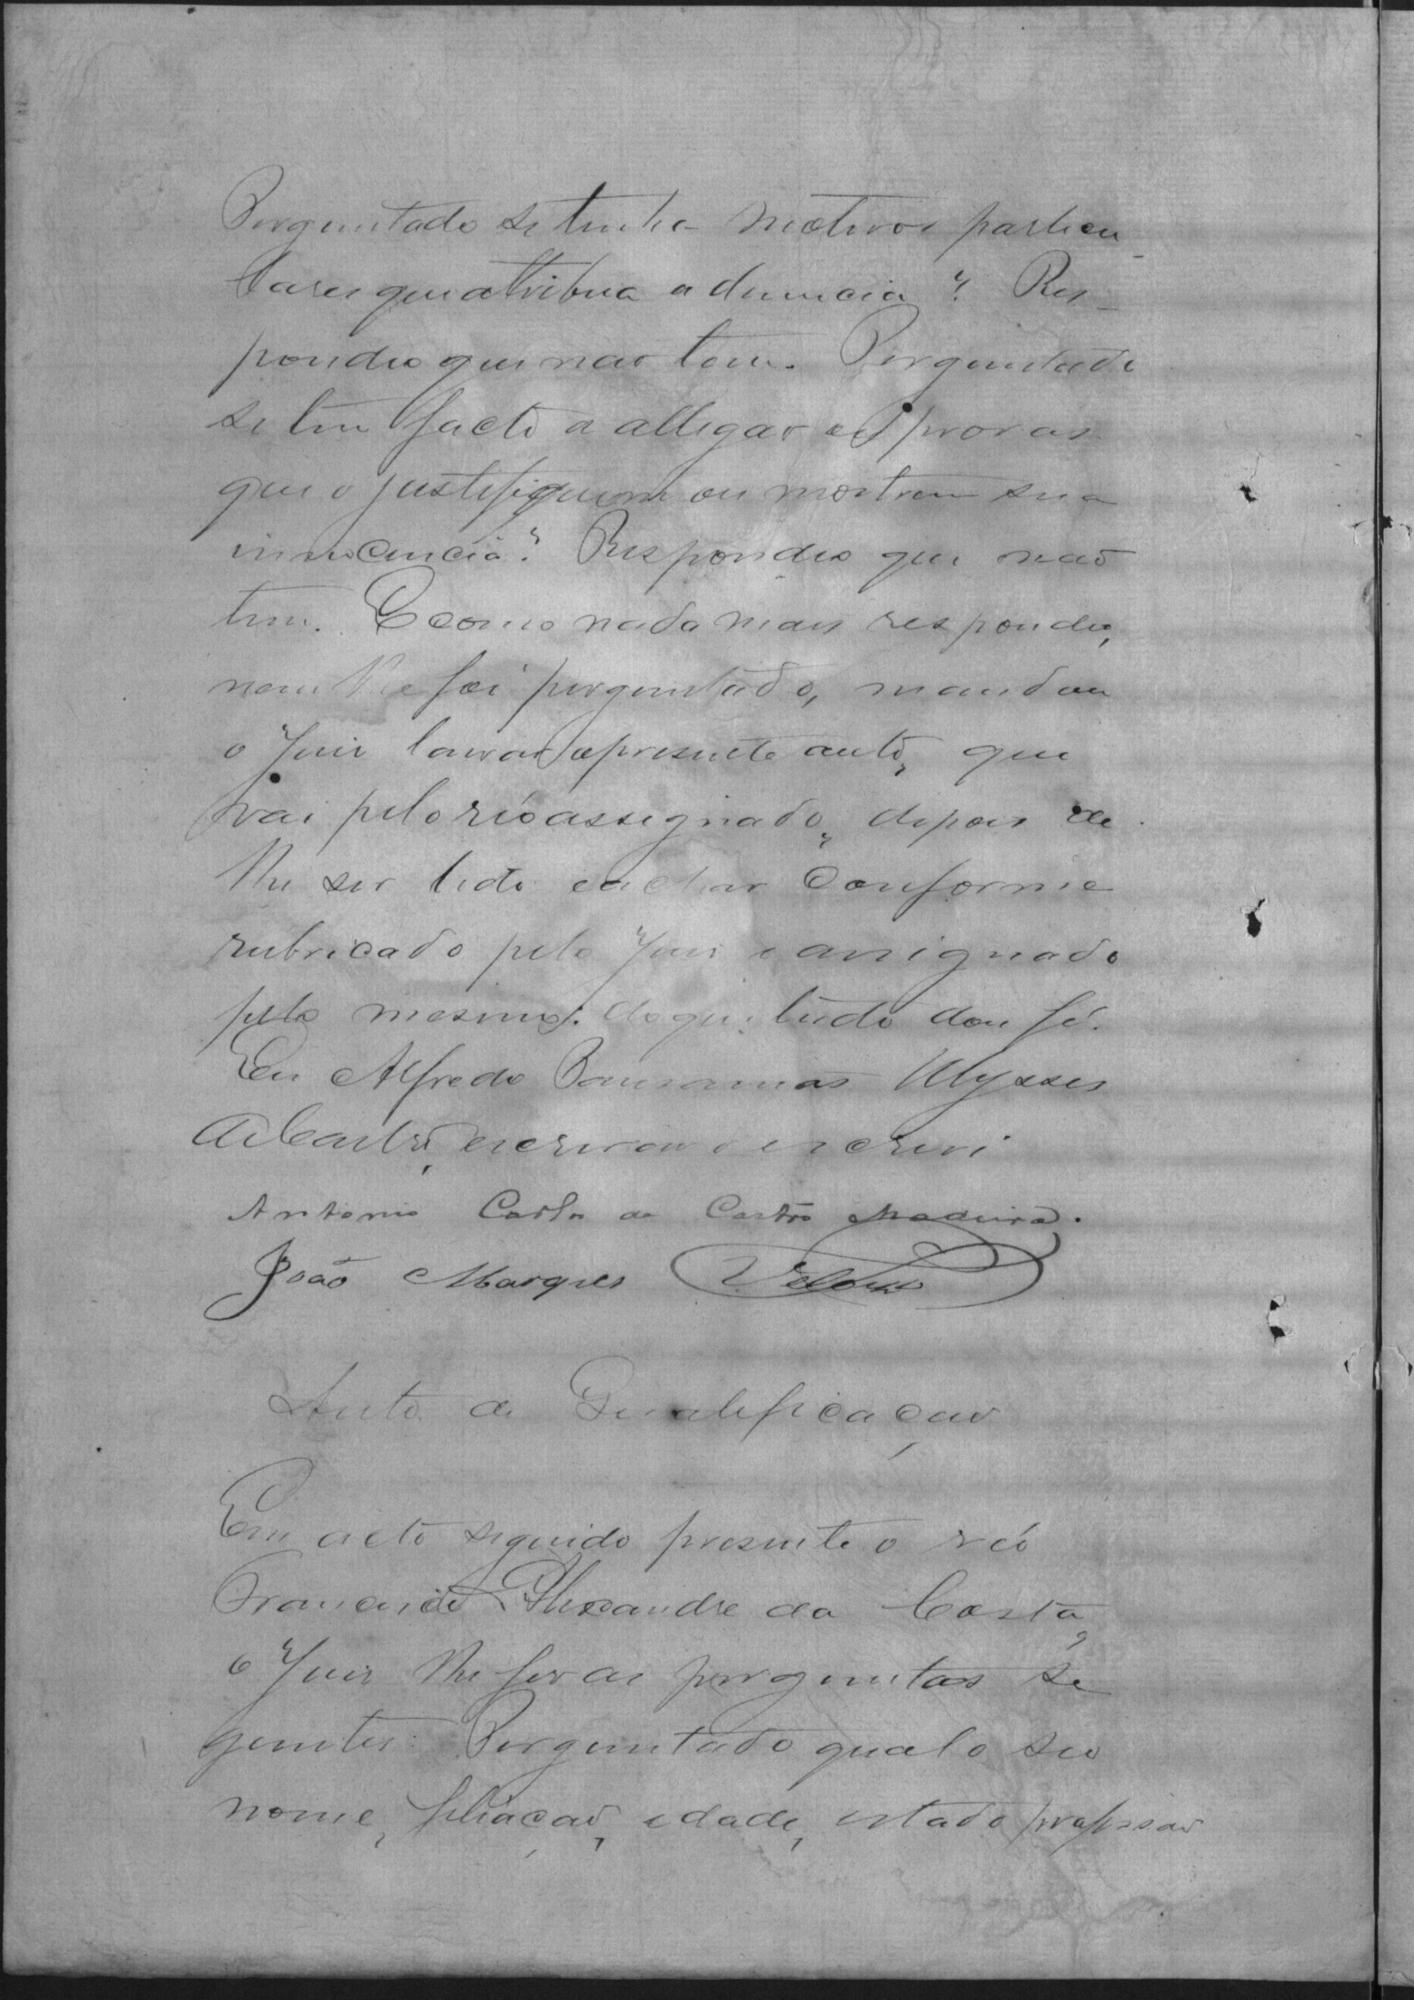 Perguntado se tinha motivos particu-
lares que attribua a denuncia? Res-
pondeo que não tem. Perguntado
se tem facto a allegar ou provas
que o justifiquem ou mostrem sua
innocencia? Respondeo que não
tem. E como nada mais respondeo,
nem lhe foi perguntado, mandou
o Juiz lavrar o presente auto, que
vai pelo réo assignado, depois de
lhe ser lido e achar conforme
rubricado pelo Juiz e assignado
pelo mesmo: do que tudo dou fé.
Eu Alfredo Ulysses
de Castro, escrivão o escrevi
Antonio Carlos de Castro Madeira.
João Marques Velloso
Auto de Qualificação
Em acto seguido presente o réo
Francisco Alexandre da Costa,
o Juiz lhe fez as perguntas se
guintes: Perguntado qual o seo
nome, filiação, edade, estado profissão